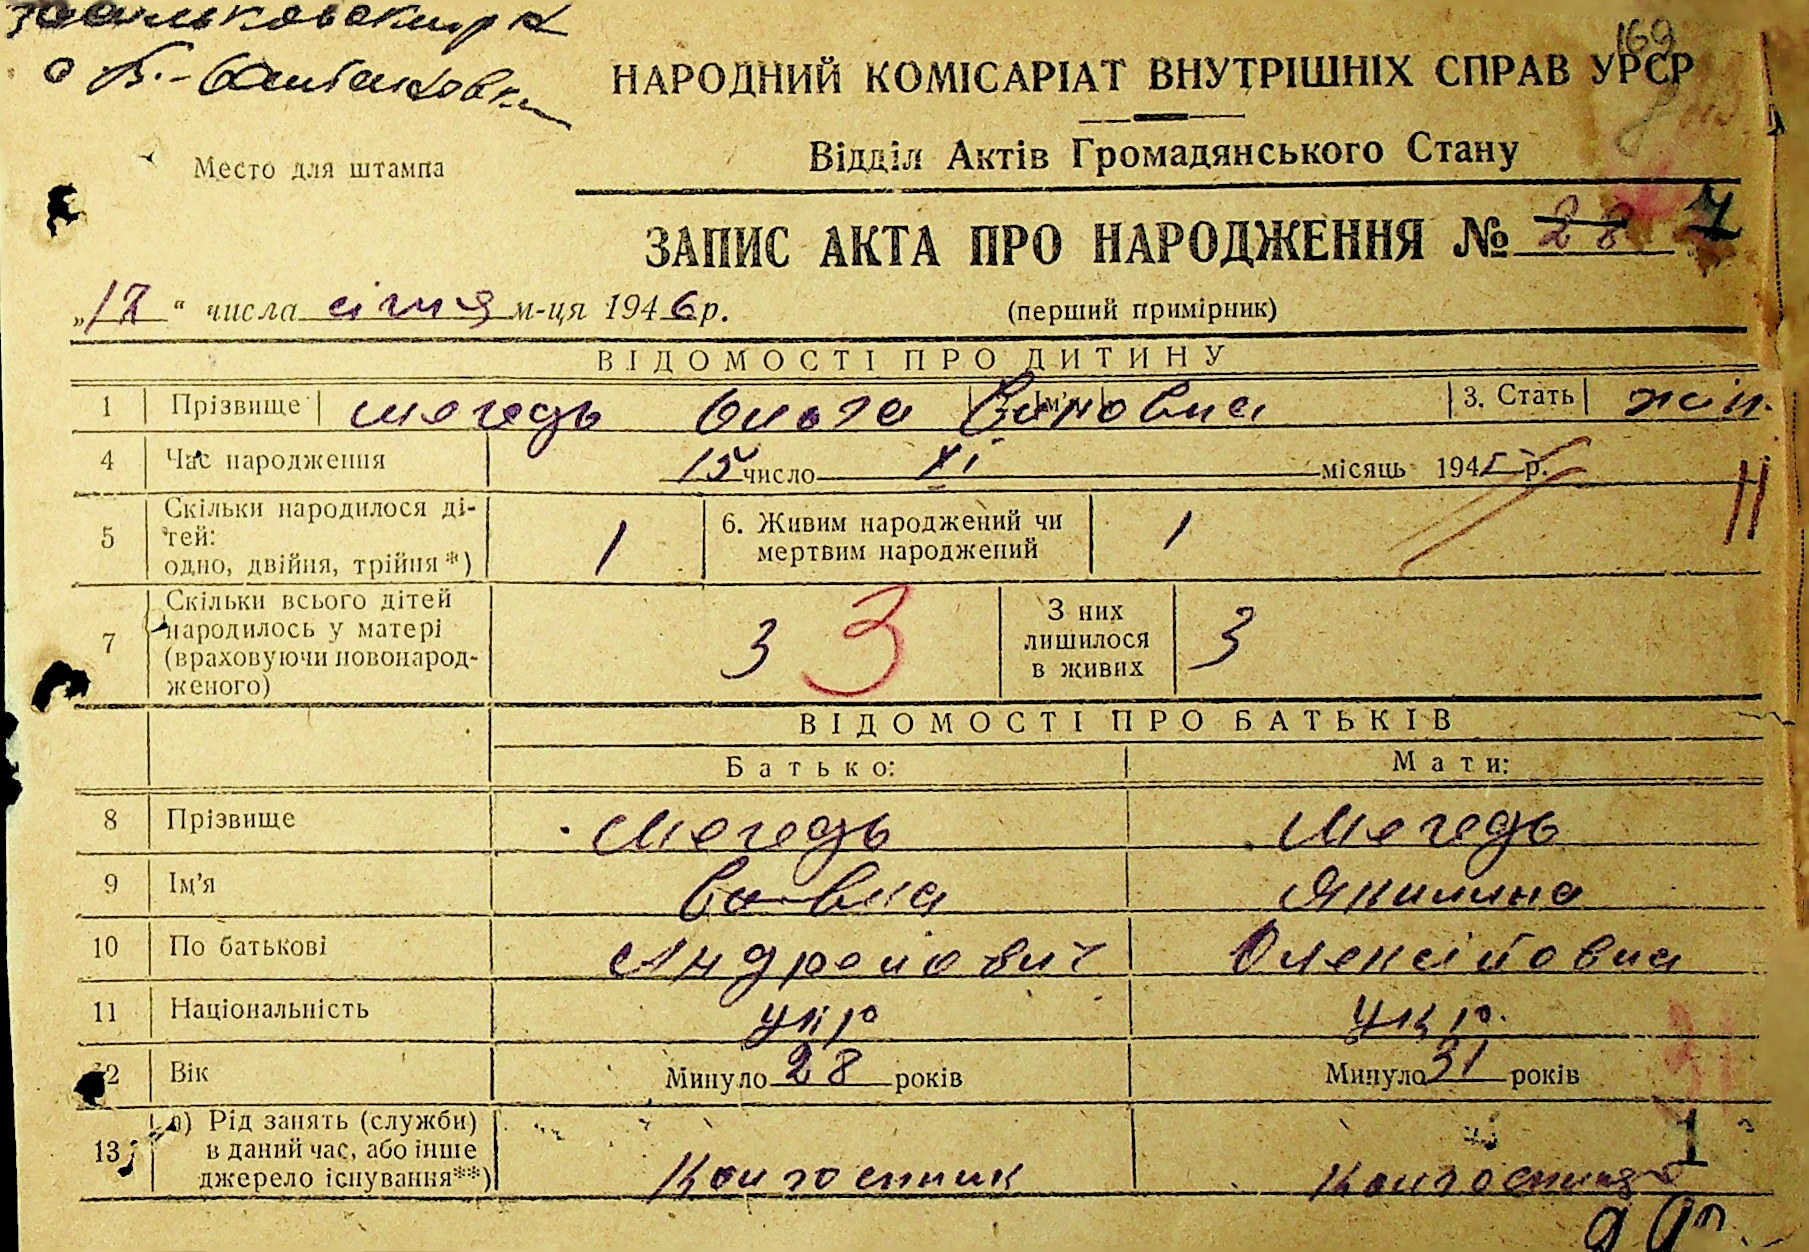 169
НАРОДНИЙ КОМІСАРІАТ ВНУТРІШНІХ СПРАВ УРСР
Відділ Актів Громадянського Стану
Место для штампа
ЗАПИС АКТА ПРО НАРОДЖЕННЯ № 28 7
„12“ числа січня м-ця 1946 р. (перший примірник)
ВІДОМОСТІ ПРО ДИТИНУ
1 Прізвище Мегедь Ольга Ім'я 3. Стать жін.
4 Час народження 15 число XI місяць 1945 р.
5 Скільки народилося ді-
тей:
одно, двійня, трійня*) 1 6. Живим народжений чи
мертвим народжений 1
II
7 Скільки всього дітей
народилось у матері
(враховуючи новонарод-
женого) 3 3 З них
лишилося
в живих 3
ВІДОМОСТІ ПРО БАТЬКІВ
Батько: Мати:
8 Прізвище Мегедь Мегедь
9 Ім'я Якилина
10 По батькові Андрейович Олексійовна
11 Національність укр укр.
12 Вік Минуло 28 років Минуло 31 років
31
13 а) Рід занять (служби)
в даний час, або інше
джерело існування**) Колгоспник Колгоспниця
1